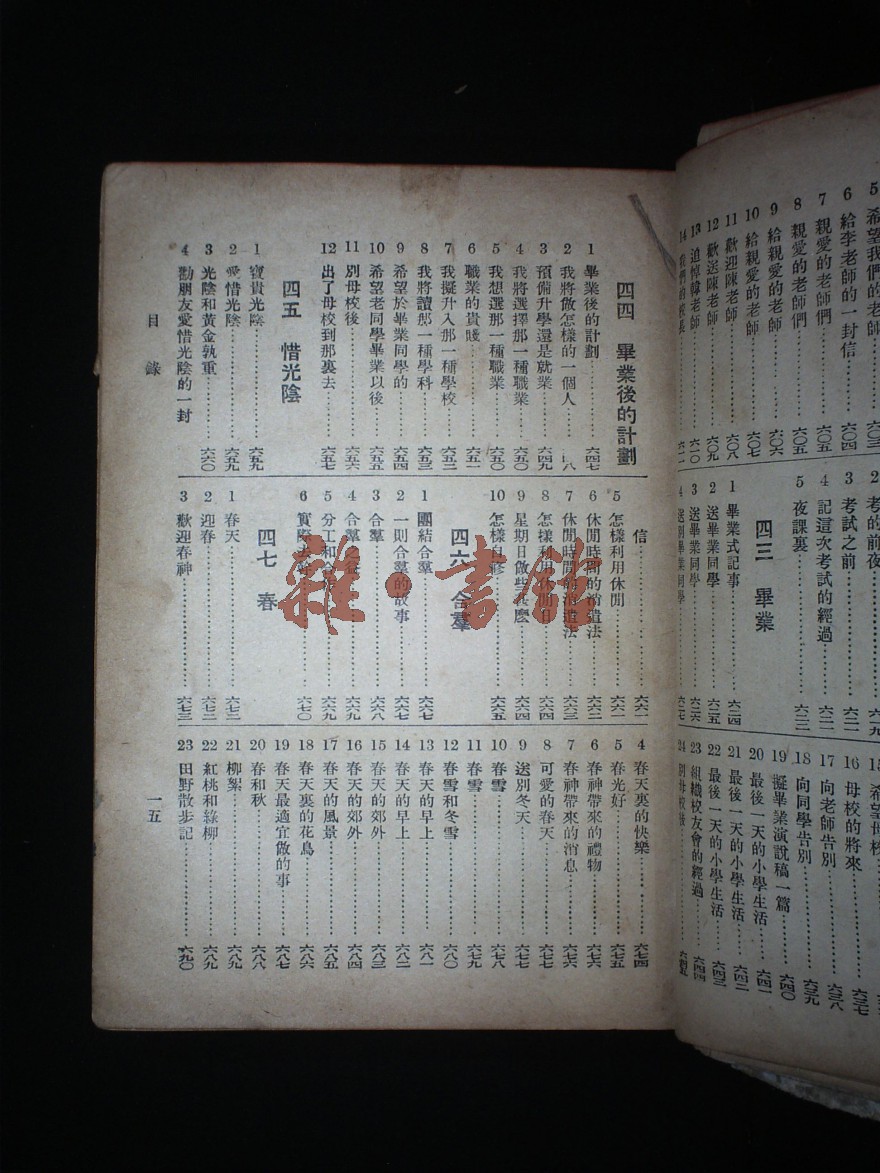 5 希望我們的……六〇三
6 給李老師的一封信……六〇四
7 親愛的老師們……六〇五
8 親愛的老師們……六〇五
9 給親愛的老師……六〇六
10 給親愛的老師……六〇七
11 歡迎陳老師……六〇八
12 歡送陳老師……六〇九
13 追悼韓老師……六一〇
14 我們的校長……六一一
2 考的前夜……六一九
3 考試之前……六二一
4 記這次考試的經過……六二二
5 夜課裏……六二三
四三 畢業
1 畢業式記事……六二四
2 送畢業同學……六二五
3 送畢業同學……六二六
4 送別畢業同學……六二七
希望母校
16 母校的將來……六三七
17 向老師告別……六三八
18 向同學告別……六三九
19 擬畢業演說稿一篇……六四〇
20 最後一天的小學生活……六四一
21 最後一天的小學生活……六四二
22 最後一天的小學生活……六四三
23 組織校友會的經過……六四四
24 別母校後……六四五
四四 畢業後的計劃
1 畢業後的計劃……六四七
2 我將做怎樣的一個人……八
3 預備升學還是就業……六四九
4 我將選擇那一種職業……六五〇
5 我想選那一種職業……六五〇
6 職業的貴賤……六五一
7 我擬升入那一種學校……六五二
8 我將讀那一種學科……六五三
9 希望於畢業同學的……六五四
10 希望老同學畢業以後……六五五
11 別母校後……六五六
12 出了母校到那裏去……六五七
四五 惜光陰
1 寶貴光陰……六五九
2 愛惜光陰……六五九
3 光陰和黃金孰重……六六〇
4 勸朋友愛惜光陰的一封
信……六六一
5 怎樣利用休閒……六六一
6 休閒時間的消遣法……六六二
7 休閒時間的消遣法……六六三
8 怎樣利用休閒日……六六四
9 星期日做些甚麼……六六四
10 怎樣自修……六六五
四六 合羣
1 團結合羣……六六七
2 一則合羣的故事……六六七
3 合羣……六六八
4 合羣之益……六六九
5 分工和合作……六六九
6 實際……六七〇
四七 春
1 春天……六七二
2 迎春……六七二
3 歡迎春神……六七三
4 春天裏的快樂……六七四
5 春光好……六七五
6 春神帶來的禮物……六七六
7 春神帶來的消息……六七六
8 可愛的春天……六七七
9 送別冬天……六七七
10 春雪……六七八
11 春雪……六七九
12 春雪和冬雪……六八〇
13 春天的早上……六八一
14 春天的早上……六八二
15 春天的郊外……六八三
16 春天的郊外……六八四
17 春天的風景……六八五
18 春天裏的花鳥……六八六
19 春天最適宜做的事……六八七
20 春和秋……六八八
21 柳絮……六八九
22 紅桃和綠柳……六八九
23 田野散步記……六九〇
目錄
一五
雜·書館